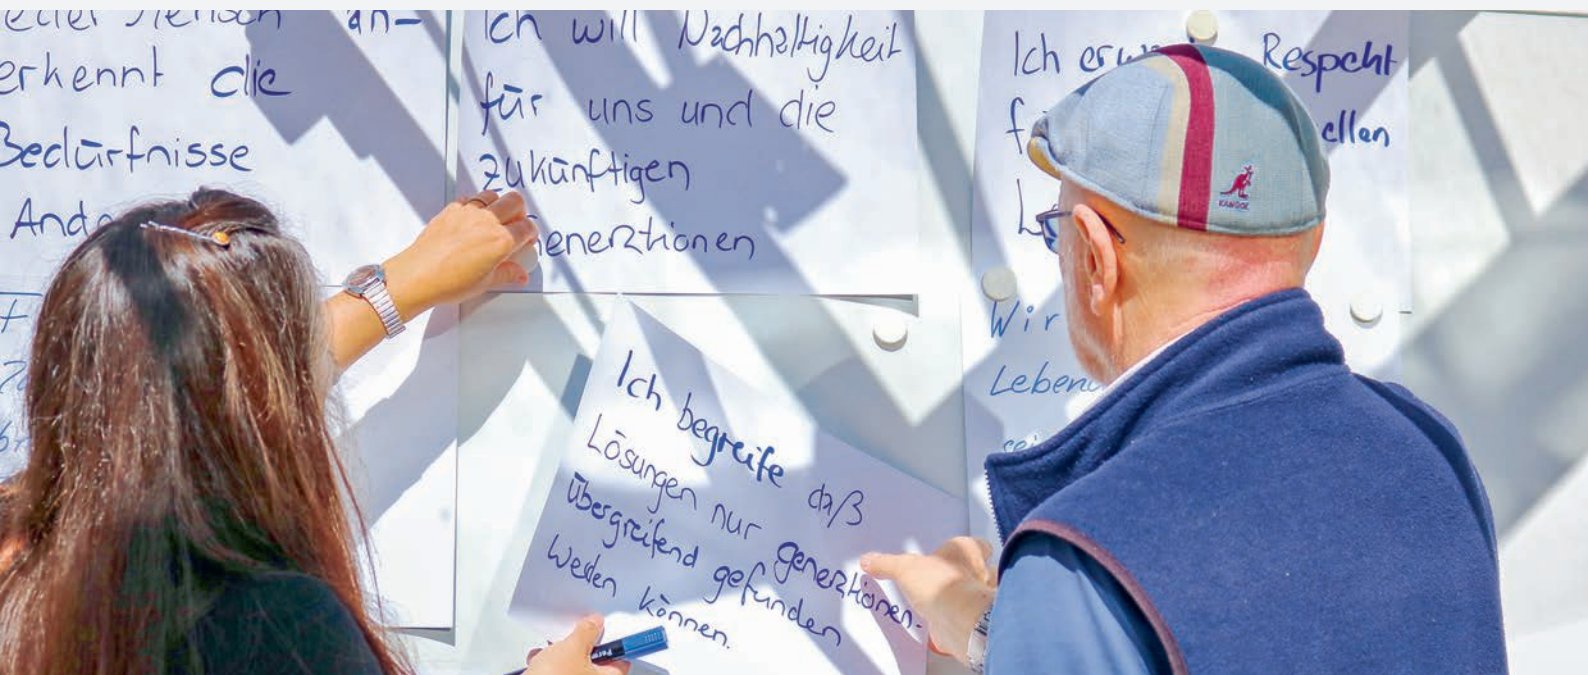 Mensch an-
erkennt die
Bedürfnisse
Ande
Ich will Nachhaltigkeit
für uns und die
zukünftigen
enerationen
Ich erw Respekt
f ellen
L
Wir
Leben
sei
Ich begreife daß
Lösungen nur generationen-
übergreifend gefunden
werden können.
KANGOL
Perm